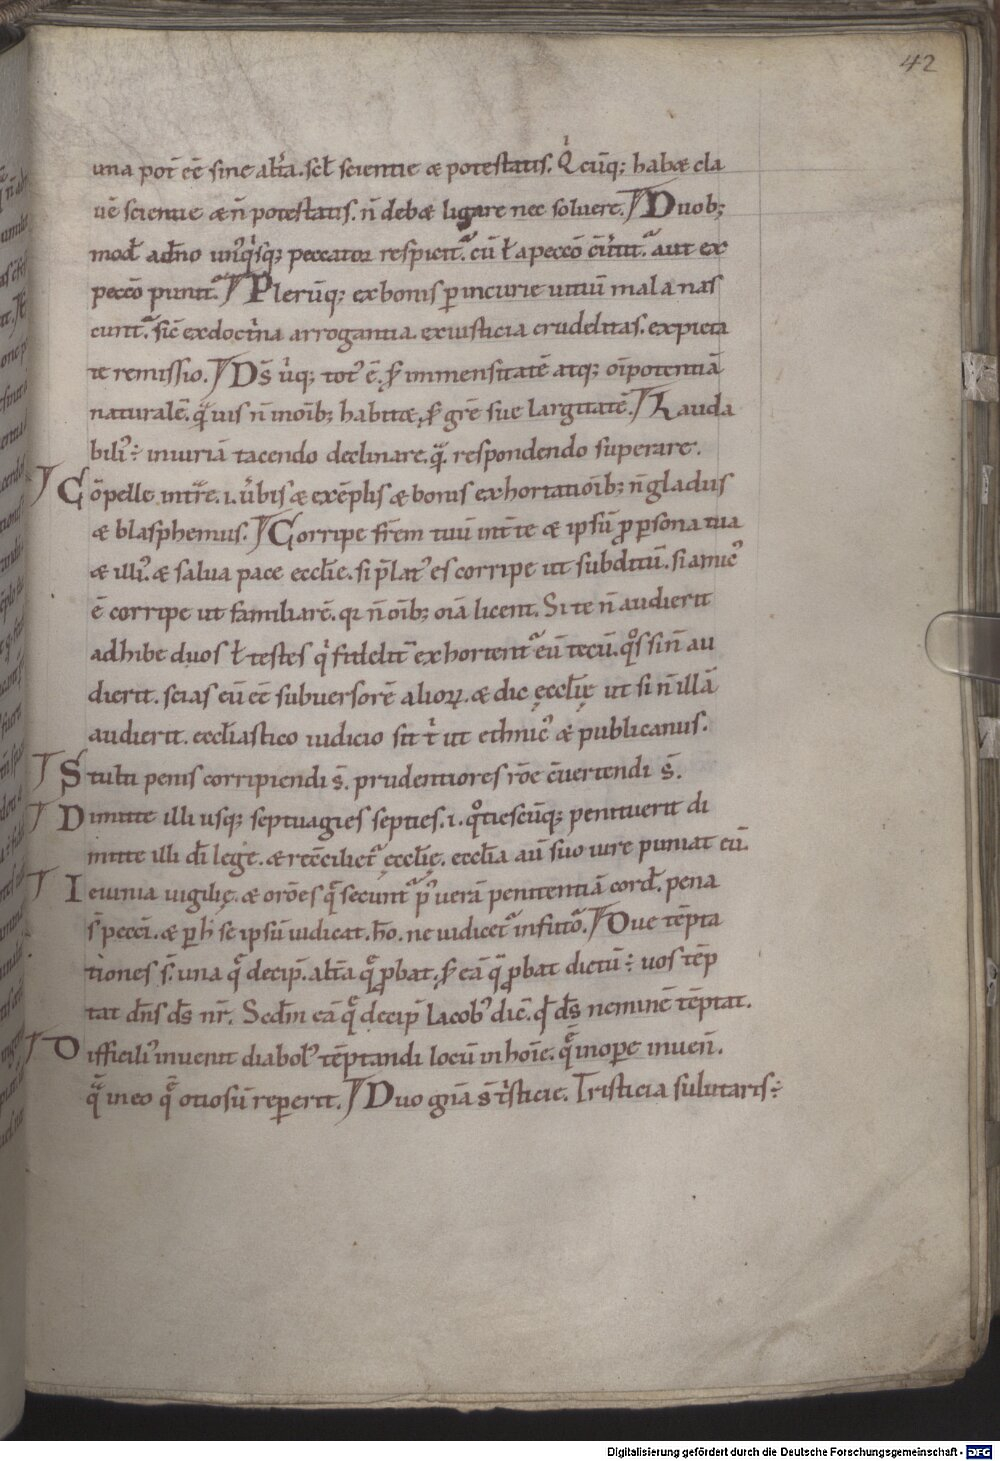 42
una pot̄ eē sine alt̓a. scl̄ scientie & potestatis. Q̓cūq; hab& cla
uē scientie & n̄ potestatis. n̄ deb& ligare nec soluere. Duob;
mod̄ ad d̄no unꝰq̓sq; peccator respicit᷑. cū ł a peccō c̄u̓tit᷑. aut ex
peccō punit᷑. Plerūq; ex bonis ꝑ incurie uitiū mala nas
cunt᷑. sic̄ ex doct̓na arrogantia. ex iusticia crudelitas. ex pieta
te remissio. Ds̄ u̓q; totꝰ ē. ꝓ immensitatē atq; oīpotentiā
naturalē. quis n̄ in oīb; habit&, ꝓ gr̄e sue largitatē. Lauda
biliꝰ ÷ iniuriā tacendo declinare. respondendo superare.
Cōpelle int̓re .i. u̓bis & exēplis & bonis exhortatiōib; n̄ gladiis
& blasphemiis. Corripe fr̄em tuū int̄ te & ipsū ꝓ ꝑsona tua
& illiꝰ. & salua pace eccl̄ie. si p̄latꝰ es corripe ut subditū. si amicꝰ
ē corripe ut familiarē. qi n̄ oīb; oīa licent. Si te n̄ audierit
adhibe duos ł testes q̓ fidelit̄ exhortent᷑ eū tecū. qͦs si n̄ au
dierit. scias eū eē subuersorē alioꝝ. & dic ęccl̄ię ut si n̄ illā
audierit. eccl̄iastico iudicio sit t̓ ut ethnicꝰ & publicanus.
Stulti penis corripiendi s̄. prudentiores rōe c̄uertendi s̄.
Dimitte illi usq; septuagies septies .i. qͦtiescūq; penituerit di
mitte illi dī lege. & recc̄iliet᷑ ęccl̄ię. eccl̄ia aū suo iure puniat eū.
Ieiunia uigilię. & orōes secunt᷑ pꝰ uerā penitentiā cord̄. pena
s̄ pecci. & ꝑ h̄ se ipsū iudicat. hō. ne iudicet᷑ in futō. Due tēpta
tiones s̄. una q̄ decip̄. alt̄a q̄ ꝓbat. ꝓ eā q̄ ꝓbat dictū ÷ uos tēp
tat dn̄s ds̄ nr̄. Scd̄m eā q̄ decip̄ Iacobꝰ dic̄. qd̄ ds̄ neminē tēptat.
Difficiliꝰ inuenit diabolꝰ tēptandi locū in hoīe. quē in oꝑe inuen̄.
quā in eo quē otiosū reperit. Duo gn̄a s̄ t̓sticie. Tristicia salutaris ÷
Digitalisierung gefördert durch die Deutsche Forschungsgemeinschaft - DFG